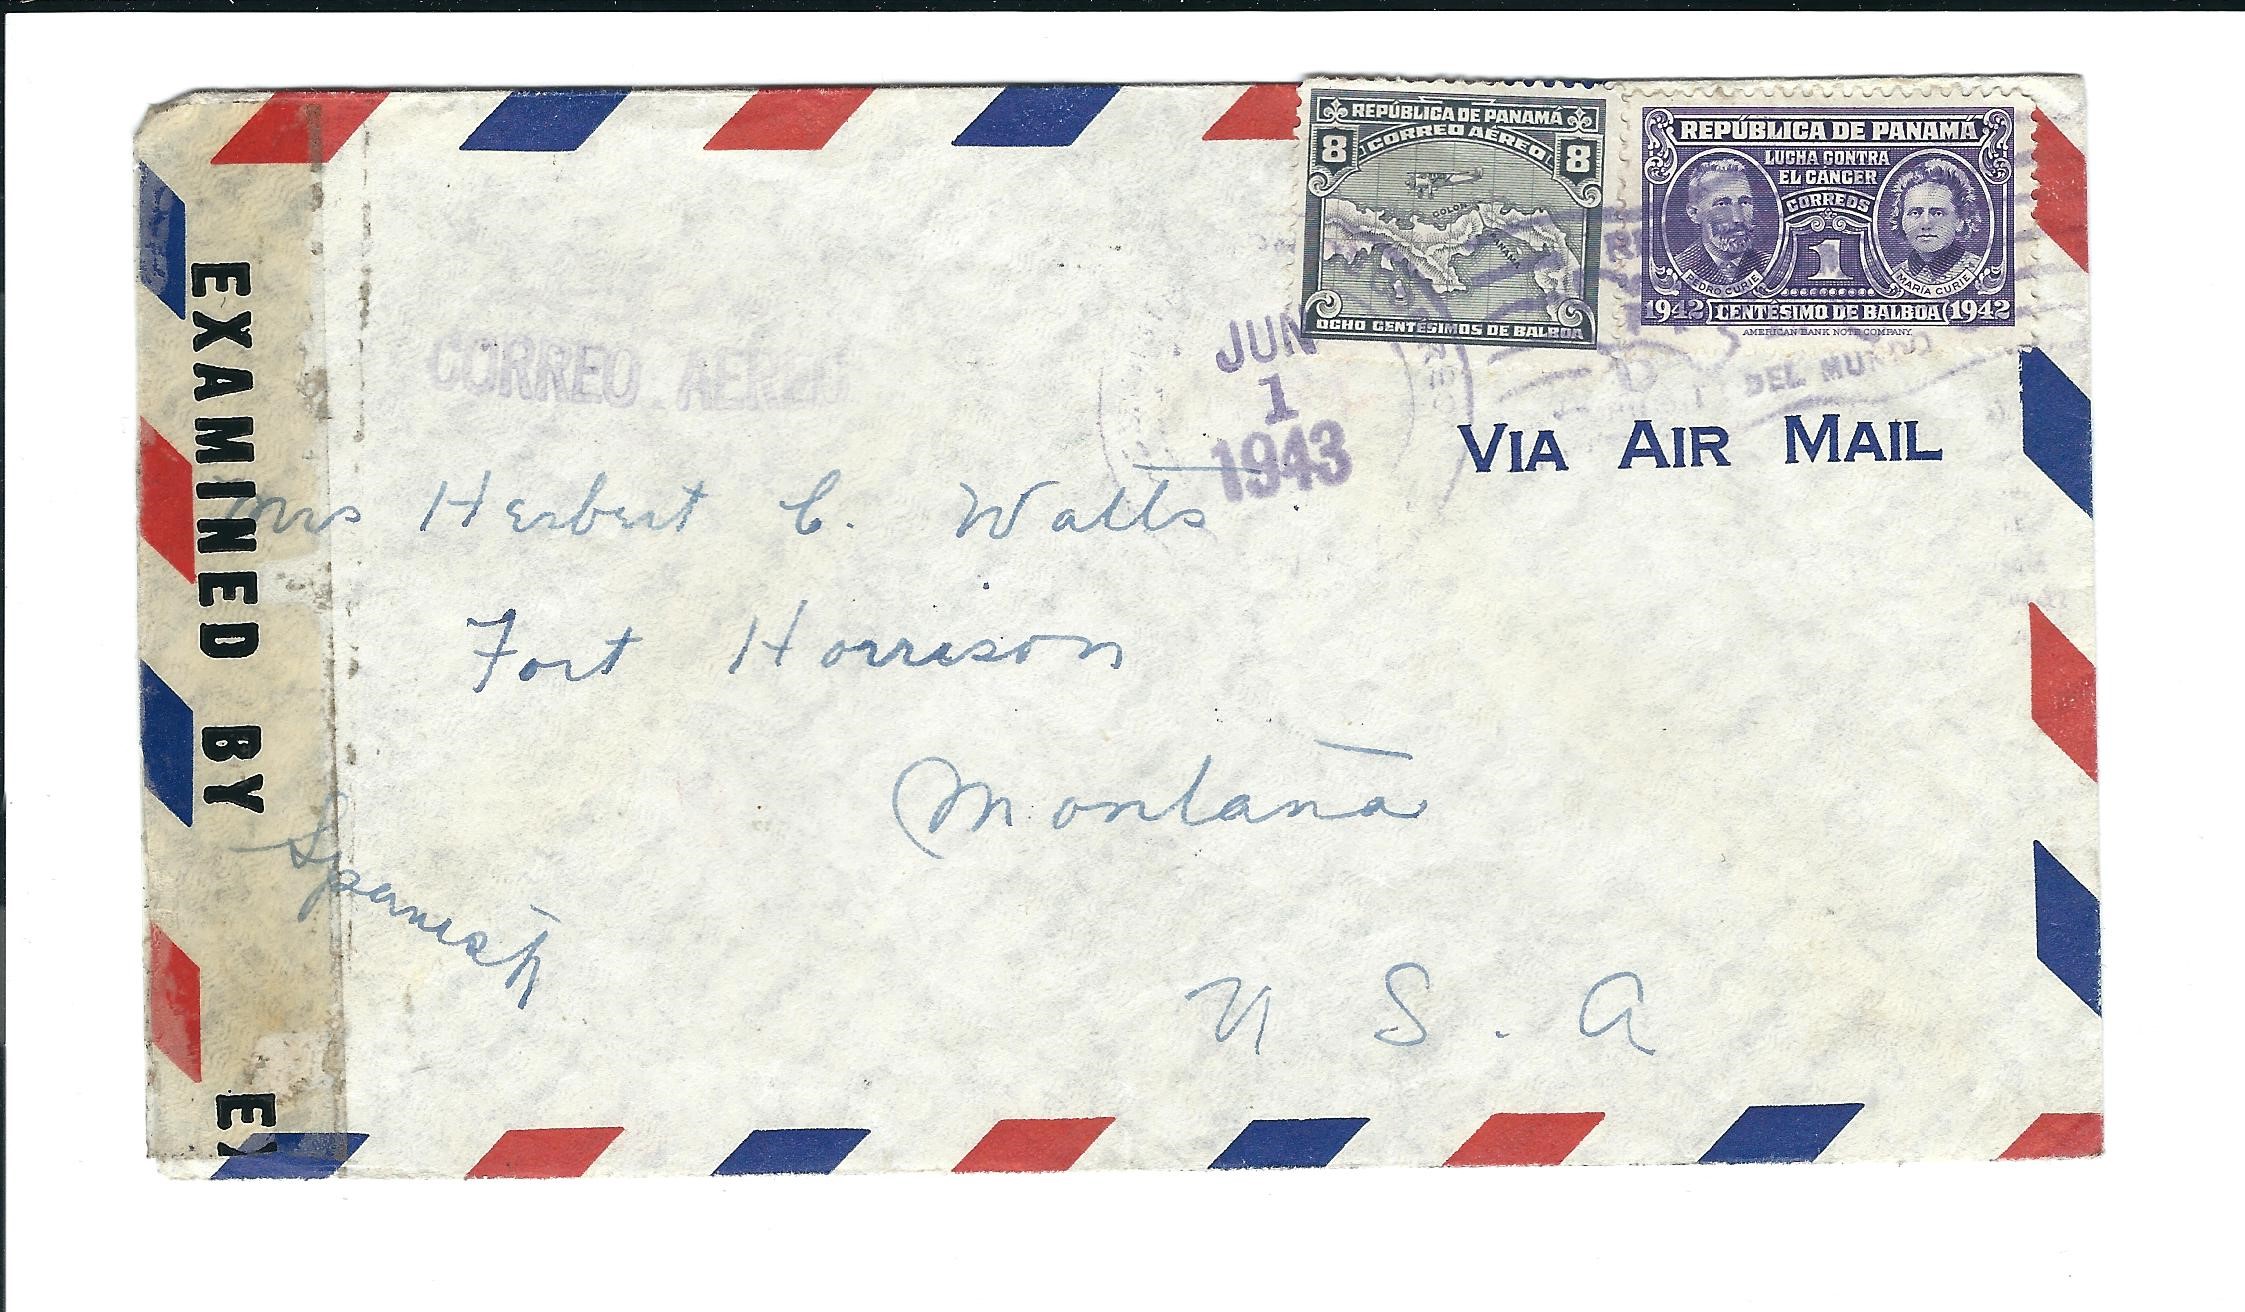 EXAMINED BY
EX
REPÚBLICA DE PANAMÁ
CORREO AÉREO
8 8
COLON
PANAMA
OCHO CENTÉSIMOS DE BALBOA
REPÚBLICA DE PANAMÁ
LUCHA CONTRA
EL CÁNCER
CORREOS
1
PEDRO CURIE
MARÍA CURIE
1942 CENTÉSIMO DE BALBOA 1942
AMERICAN BANK NOTE COMPANY.
CORREO AEREO
JUN
1
1943
DEL MUNDO
VIA AIR MAIL
Mrs Herbert C. Watts
Fort Harrison
Montana
Spanish
U S. A